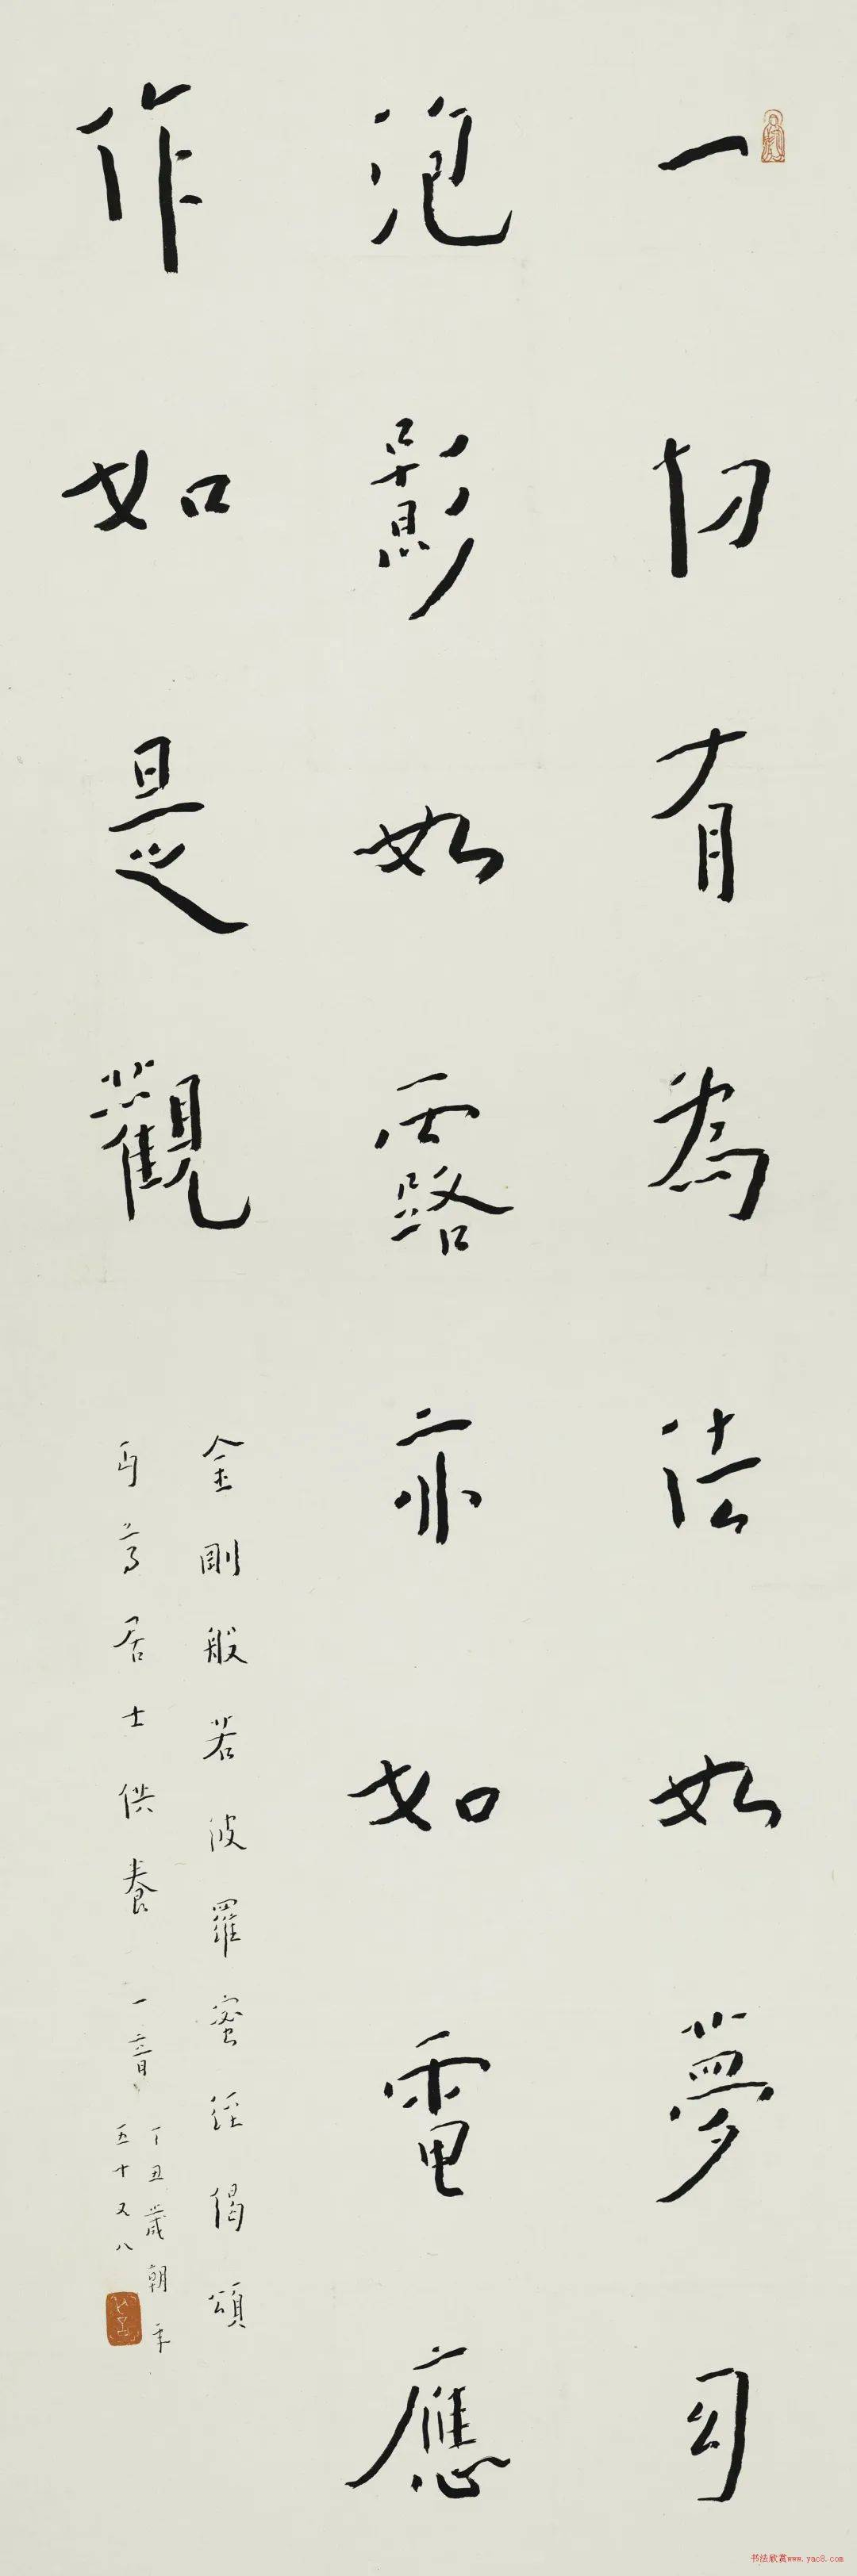 一切有為法如夢幻
泡影如露亦如電應
作如是觀
金剛般若波羅蜜經偈頌
居士供養 一音
丁丑歲朝年
五十又八
书法欣赏www.yac8.com